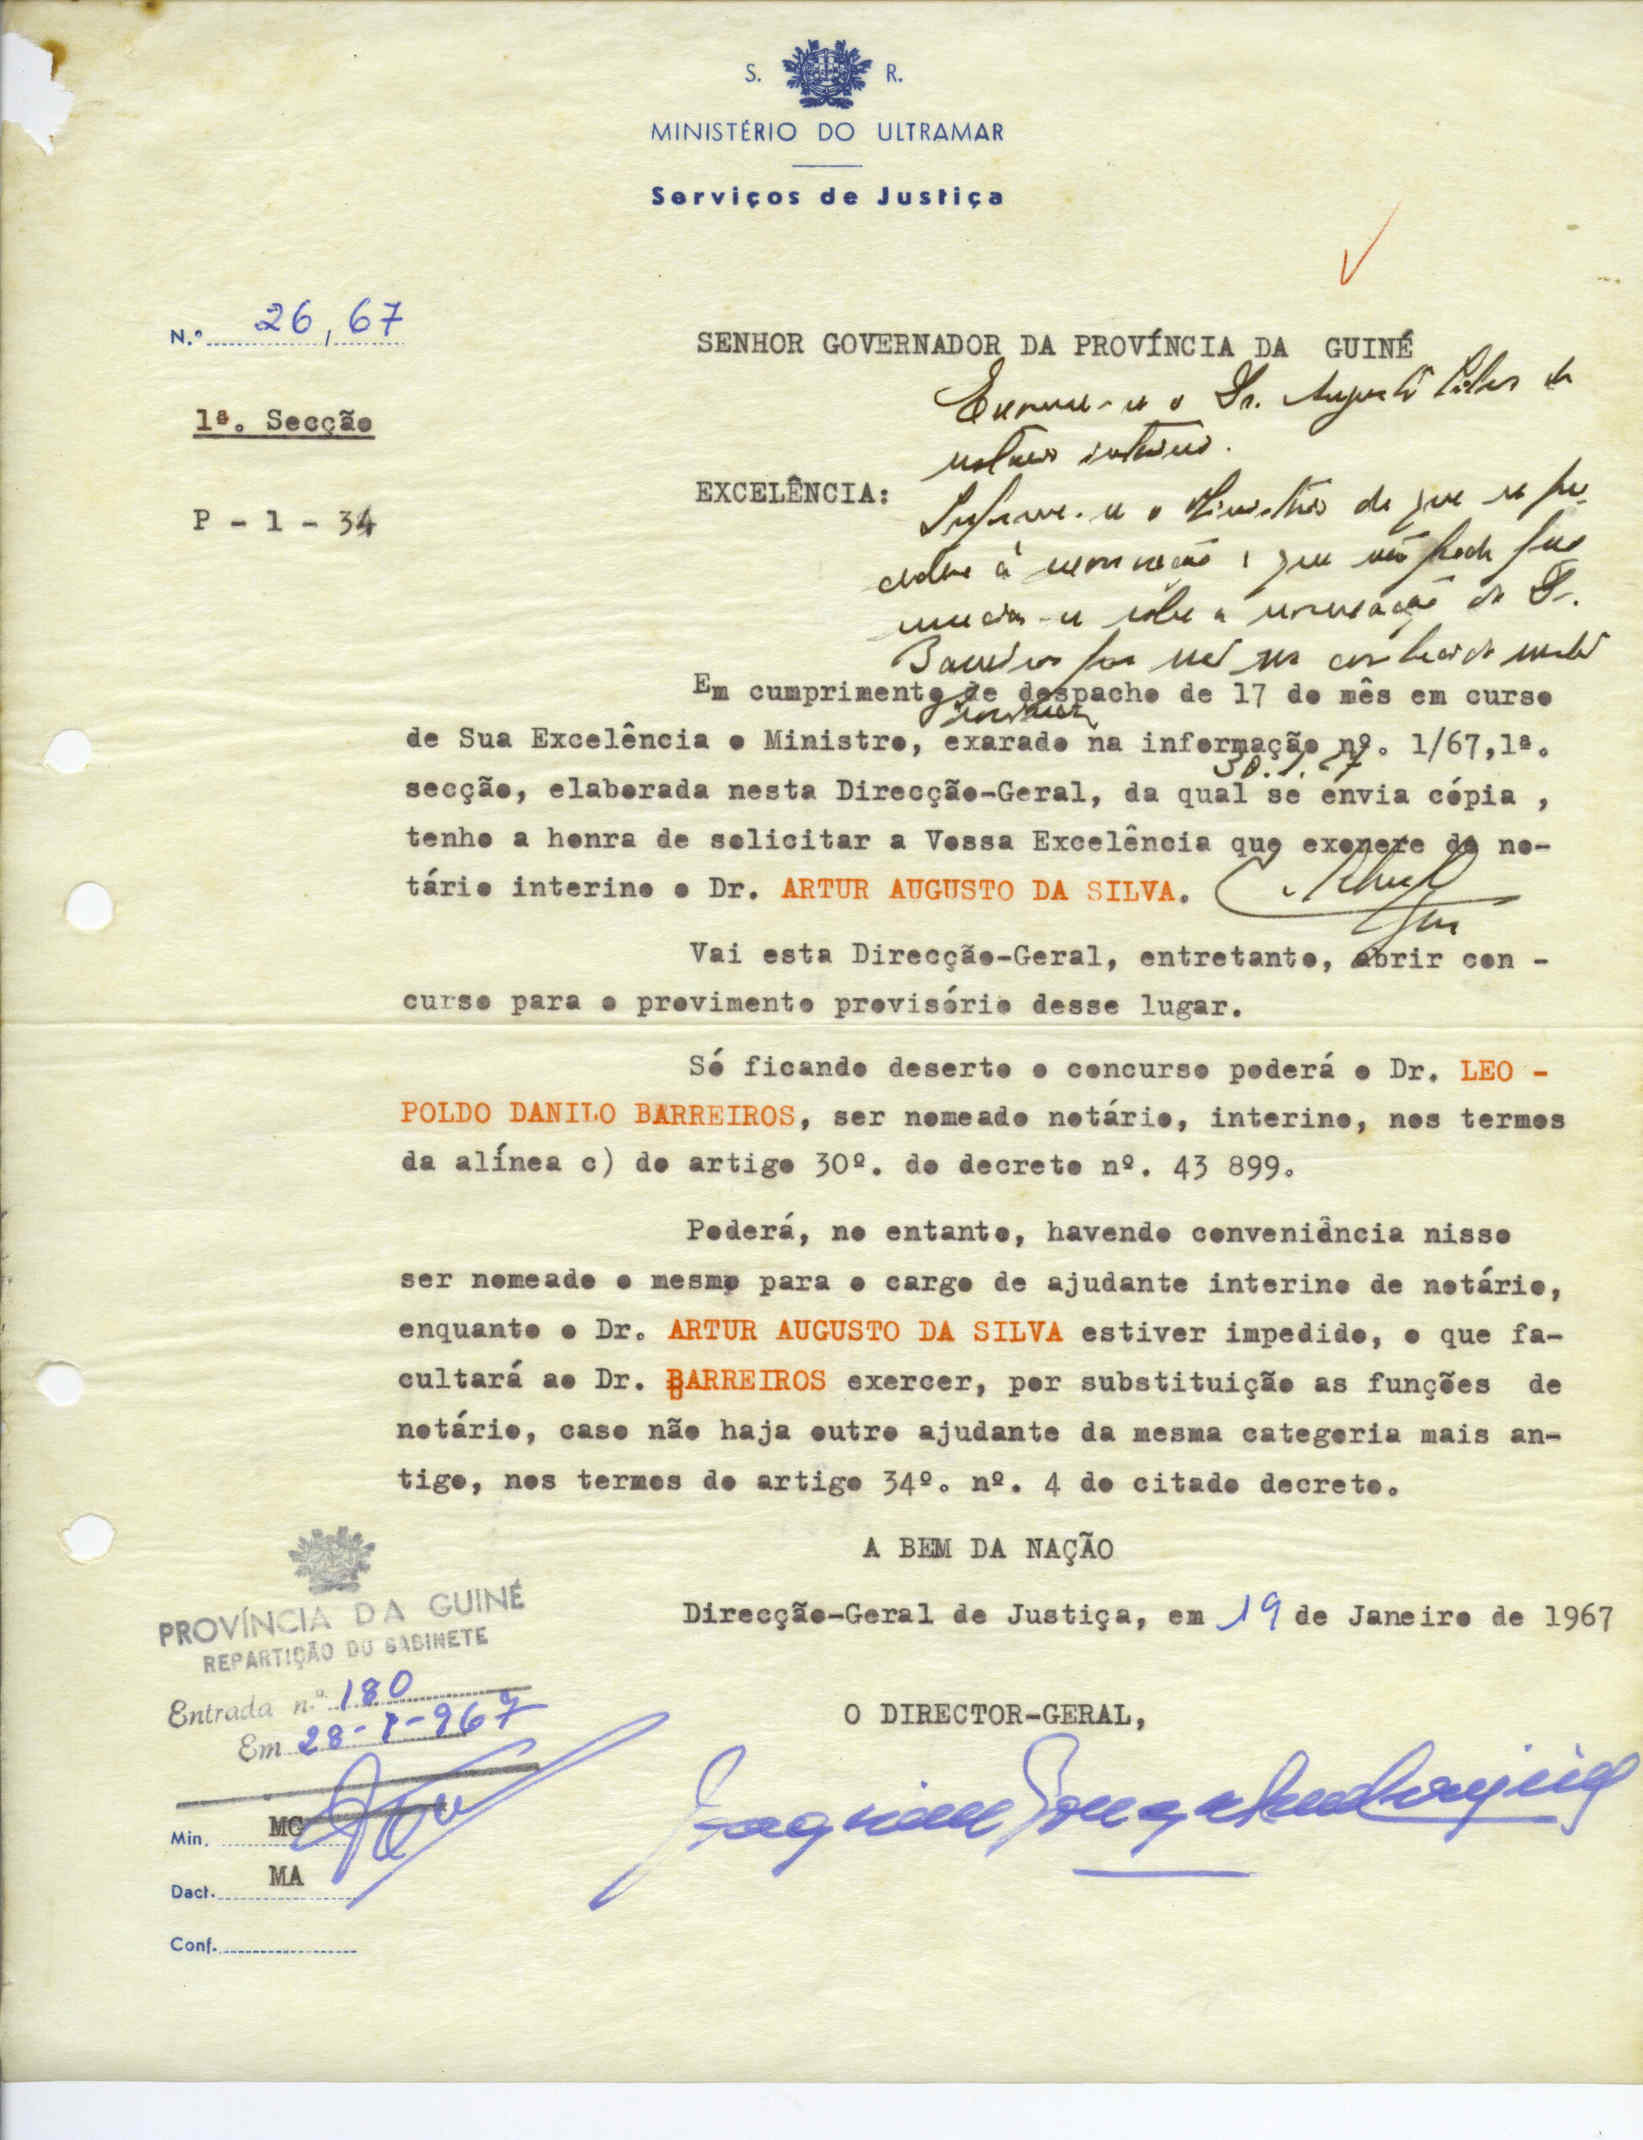 S. R.
MINISTÉRIO DO ULTRAMAR
Serviços de Justiça
N.º 26, 67
SENHOR GOVERNADOR DA PROVÍNCIA DA GUINÉ
1ª. Secção
Exonere-se o Dr. Augusto Silva de
notário interino.
EXCELÊNCIA:
P - 1 - 34
Informe-se o Ministério de que se pro-
cedeu à exoneração e que não pode pro-
nunciar-se sobre a nomeação do Dr.
Barreiros por não ser conhecido nesta
Província
30.1.67
Em cumprimento de despacho de 17 do mês em curso
de Sua Excelência o Ministro, exarado na informação nº. 1/67,1ª.
secção, elaborada nesta Direcção-Geral, da qual se envia cópia ,
tenho a honra de solicitar a Vossa Excelência que exonere de no-
tário interino o Dr. ARTUR AUGUSTO DA SILVA.
Vai esta Direcção-Geral, entretanto, abrir con -
curso para o provimento provisório desse lugar.
Só ficando deserto o concurso poderá o Dr. LEO -
POLDO DANILO BARREIROS, ser nomeado notário, interino, nos termos
da alínea c) do artigo 30º. do decreto nº. 43 899.
Poderá, no entanto, havendo conveniência nisso
ser nomeado o mesmo para o cargo de ajudante interino de notário,
enquanto o Dr. ARTUR AUGUSTO DA SILVA estiver impedido, o que fa-
cultará ao Dr. BARREIROS exercer, por substituição as funções de
notário, caso não haja outro ajudante da mesma categoria mais an-
tigo, nos termos do artigo 34º. nº. 4 do citado decreto.
A BEM DA NAÇÃO
Direcção-Geral de Justiça, em 19 de Janeiro de 1967
PROVÍNCIA DA GUINÉ
REPARTIÇÃO DO GABINETE
Entrada n.º 180
Em 28-1-967
O DIRECTOR-GERAL,
Min. MG
Dact. MA
Conf.